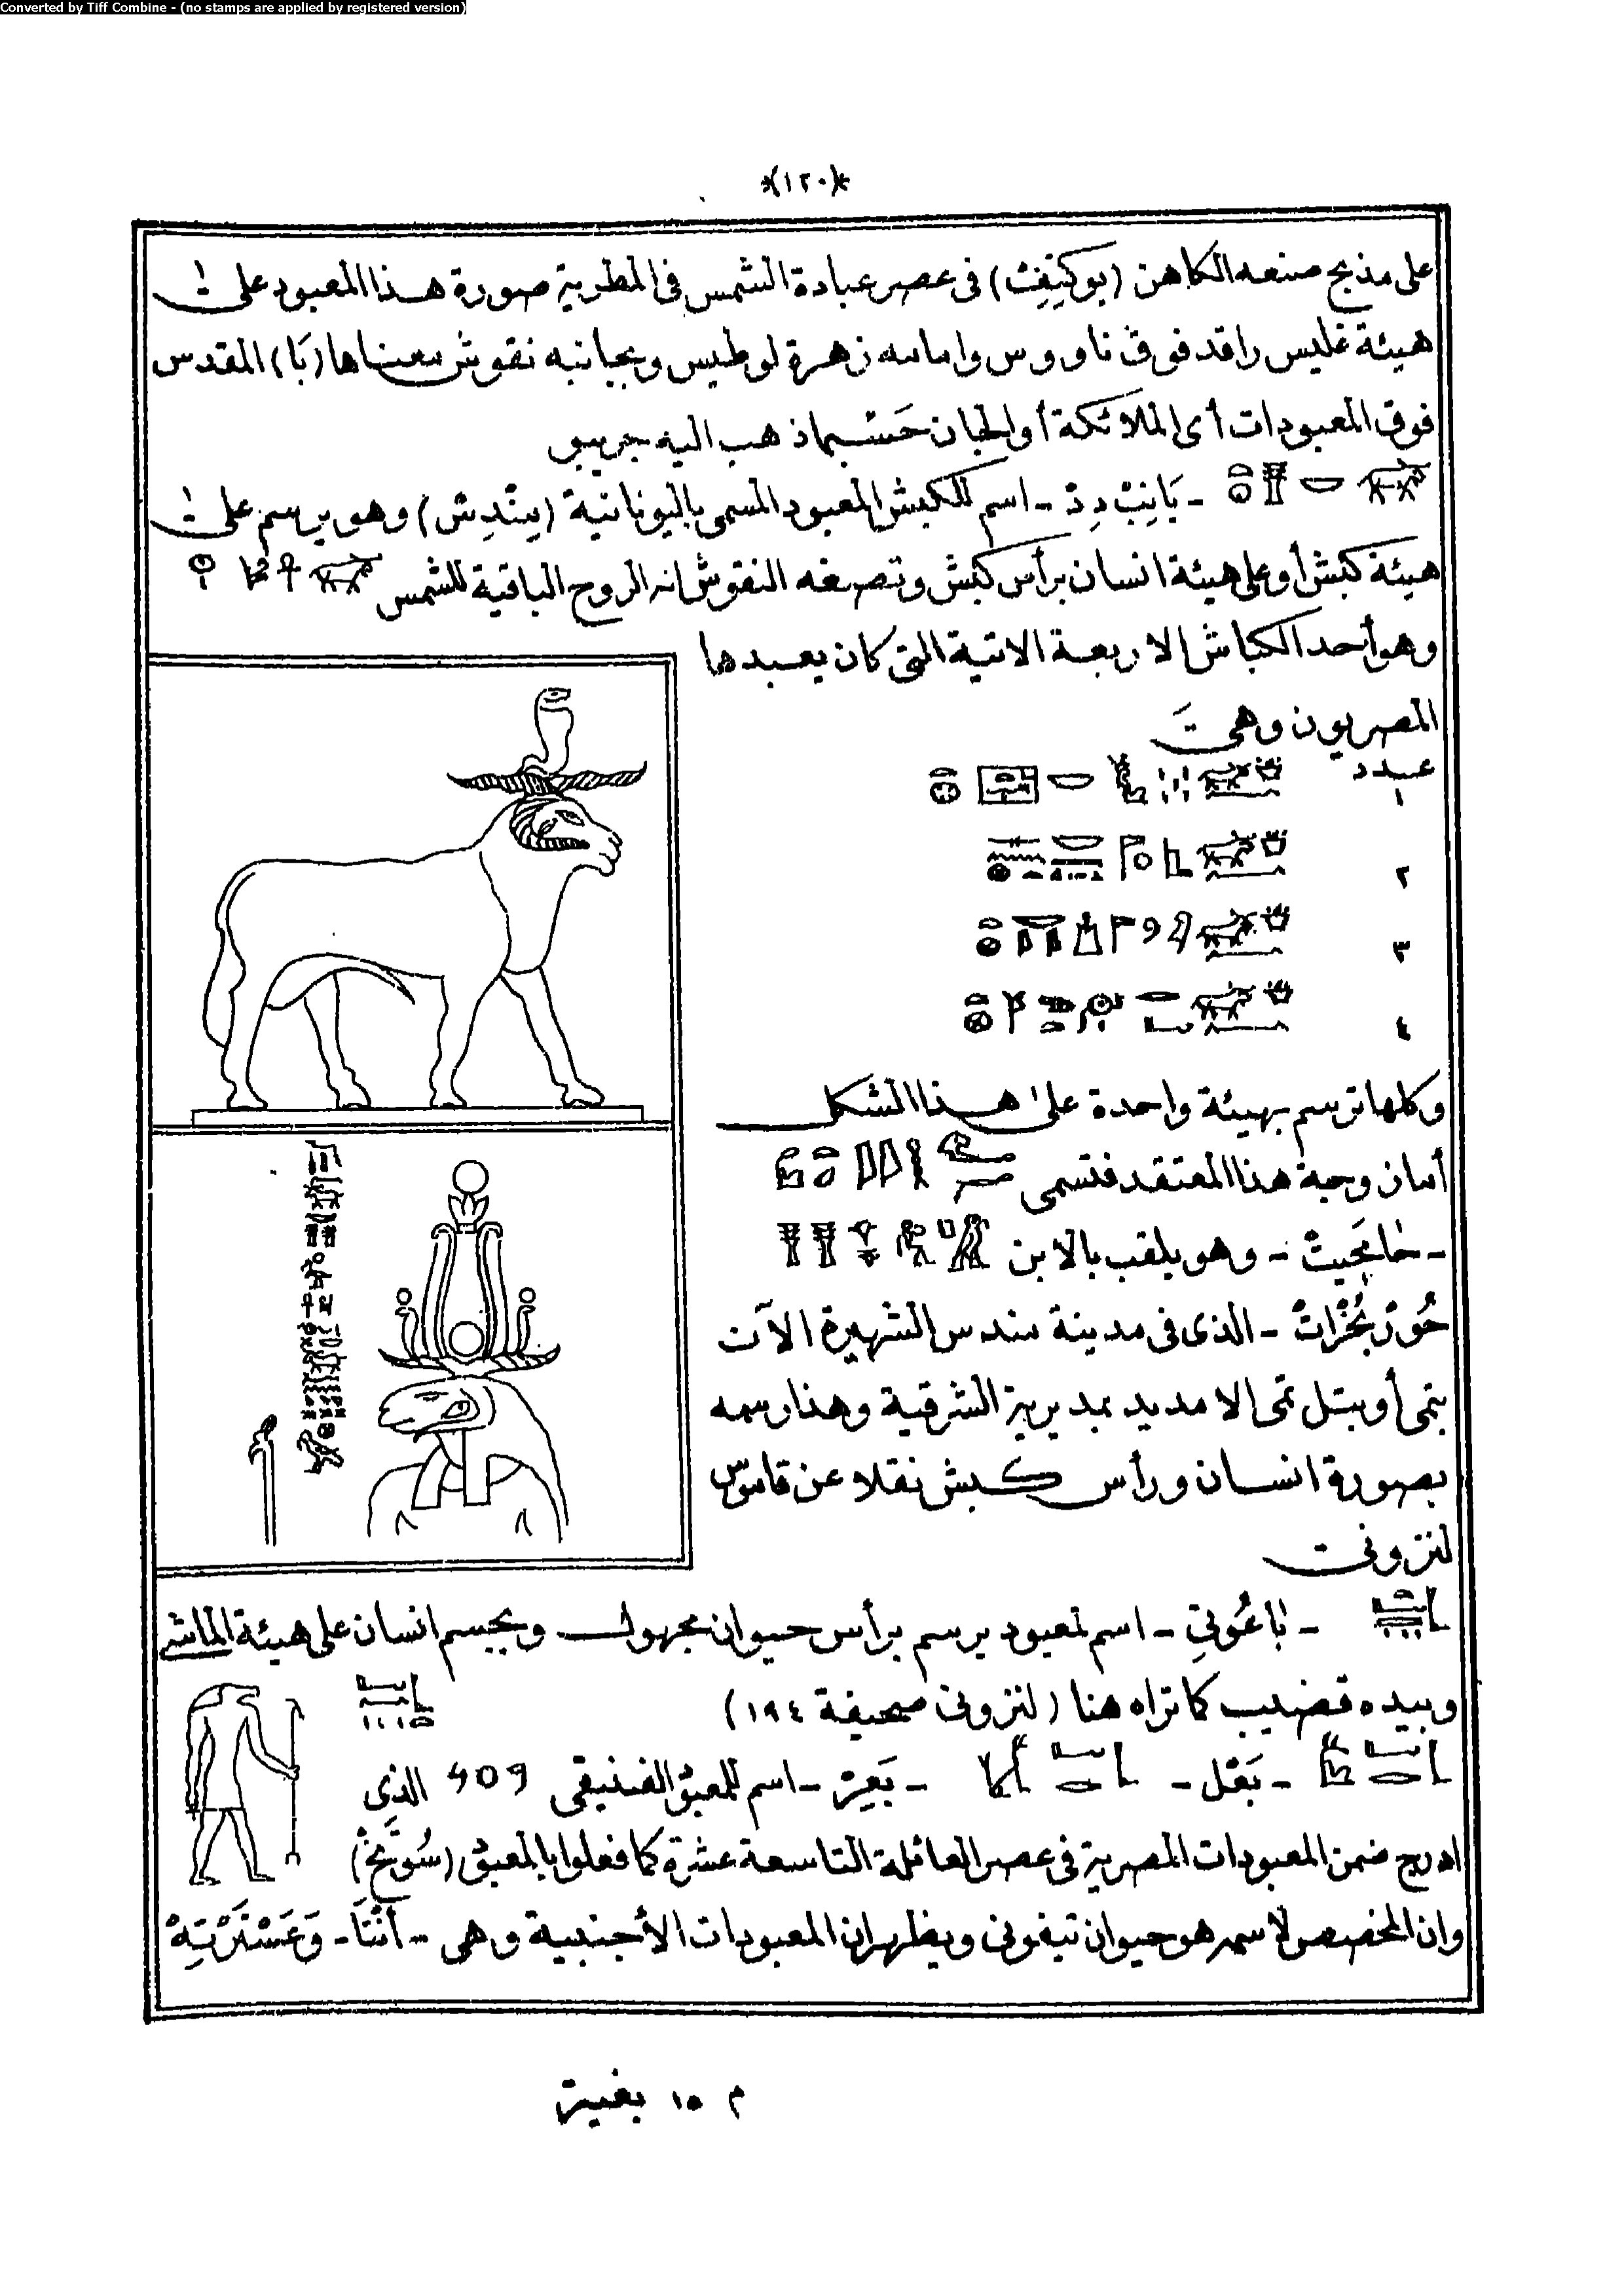 Converted by Tiff Combine - (no stamps are applied by registered version)
*(١٢٠)*
على مذبح صنعه الكاهن ( ) فى عصر عبادة الشمس فى المطرية صورة هذا المعبود على
هيئة راقد فوق ناووس وامامه زهرة لوطيس وبجانبه نقوش معناها (بَا) المقدس
فوق المعبودات أى الملائكة أو الجان حسبما ذهب اليه
- بَانِبْ دِدْ - اسم للكبش المعبود المسمى باليونانية (مِنْدِش) وهو يرسم على
هيئة كبش أو على هيئة انسان برأس كبش وتصفه النقوش انه الروح الباقية للشمس
وهو أحد الكباش الاربعة الاتية التى كان يعبدها
المصريون وهى
عدد
١
٢
٣
٤
وكلها ترسم بهيئة واحدة على هذا الشكل
أما زوجة هذا المعتقد فتسمى
- - وهو يلقب بالابن
- الذى فى مدينة مندس الشهيرة الآن
بتمى أو بتل تمى الامديد بمديرية الشرقية وهذا رسمه
بصورة انسان ورأس كبش نقلا عن قاموس
لنزونى
- بَاعُوتِي - اسم لمعبود يرسم برأس حيوان مجهول وبجسم انسان على هيئة الماشى
وبيده قضيب كما تراه هنا (لنزونى صحيفة ١٩٤)
- بَعْل - - بَعِرْ - اسم للمعبود الفنيقى الذى
ادرج ضمن المعبودات المصرية فى عصر العائلة التاسعة عشرة كما فعلوا بالمعبود (سُوتَخْ)
وان المخصص لاسمه هو حيوان تيفونى ويظهر ان المعبودات الأجنبية وهى - أَنْتَا -
م ١٥ بغية